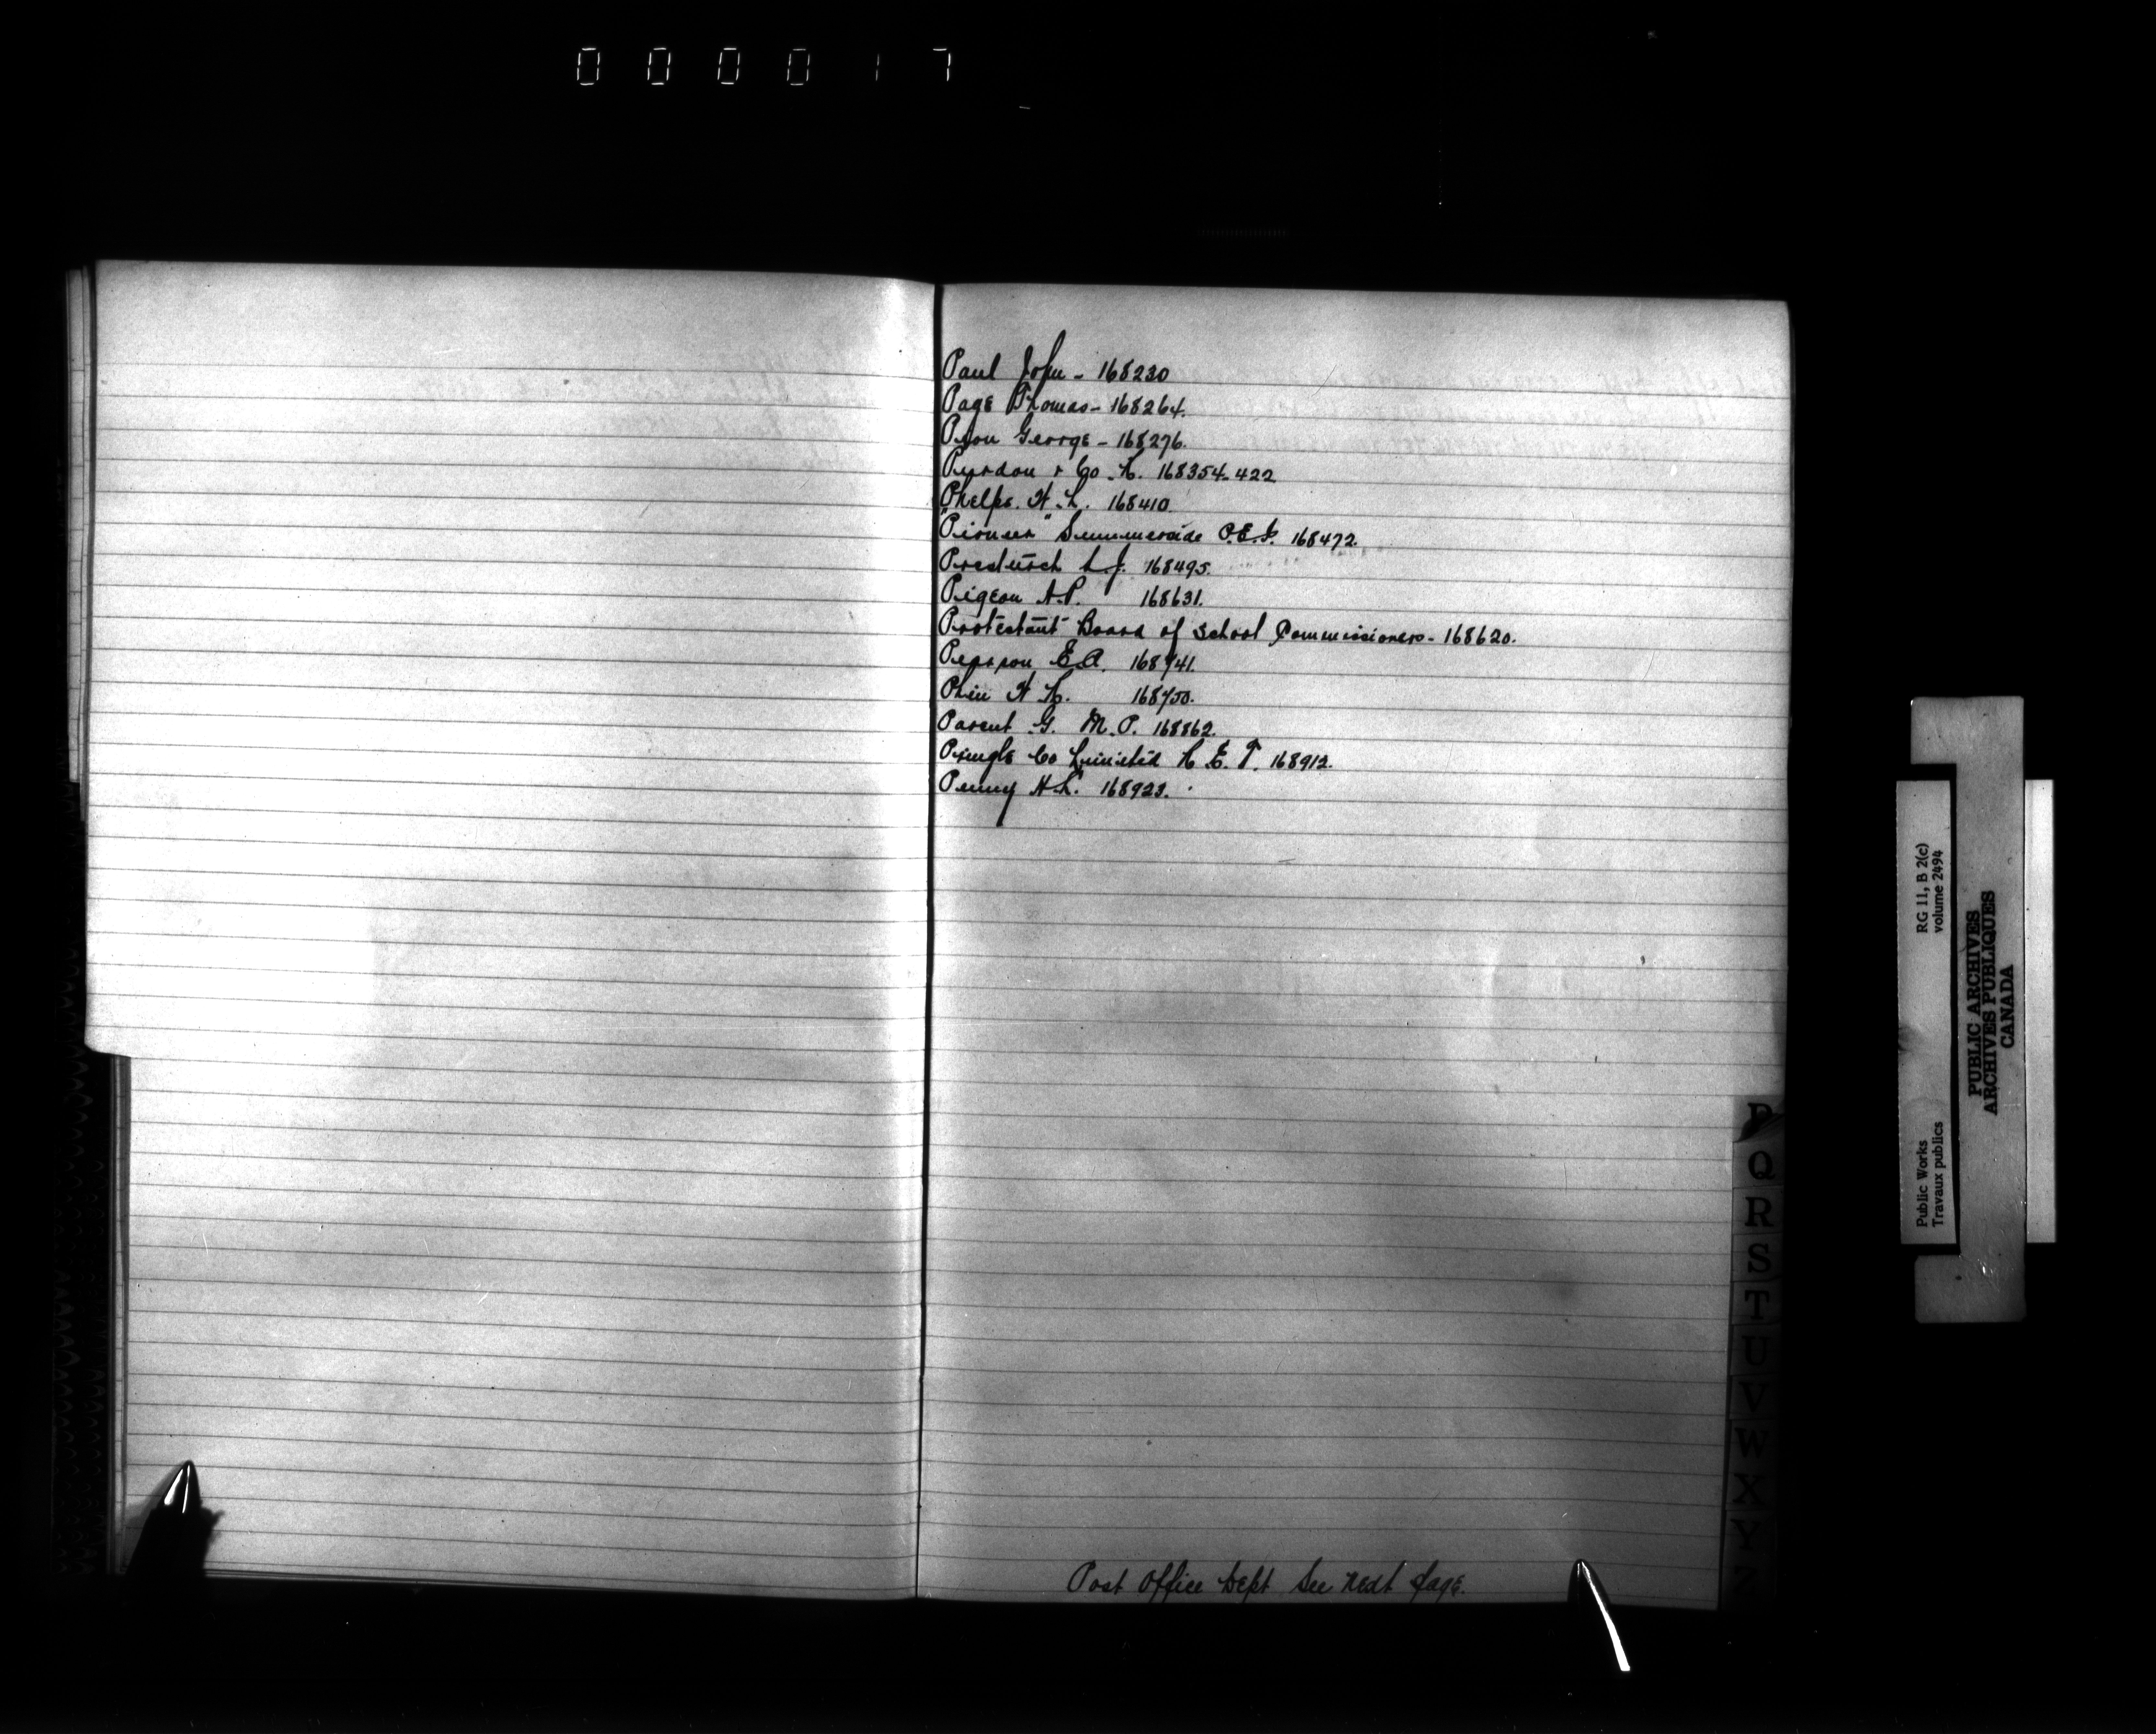 000017
Paul John - 168230
Page Thomas - 168264.
Pyon George - 168276.
& Co. H. 168354-422
Phelps. H. L. 168410
"Pioneer" Summerside P.E.I. 168472.
L.J. 168495.
Pigeon A.P. 168631.
Protestant Board of School Commissioners - 168620.
E.A. 168741.
Phin H. H. 168750.
Parent G. M.P. 168862.
Pringle Co Limited R. E. T. 168912.
Penny H.L. 168923.
Post Office Dept See next page.
P
Q
R
S
T
U
V
W
X
Y
Z
RG 11, B 2(c)
volume 2494
Public Works
Travaux publics
PUBLIC ARCHIVES
ARCHIVES PUBLIQUES
CANADA